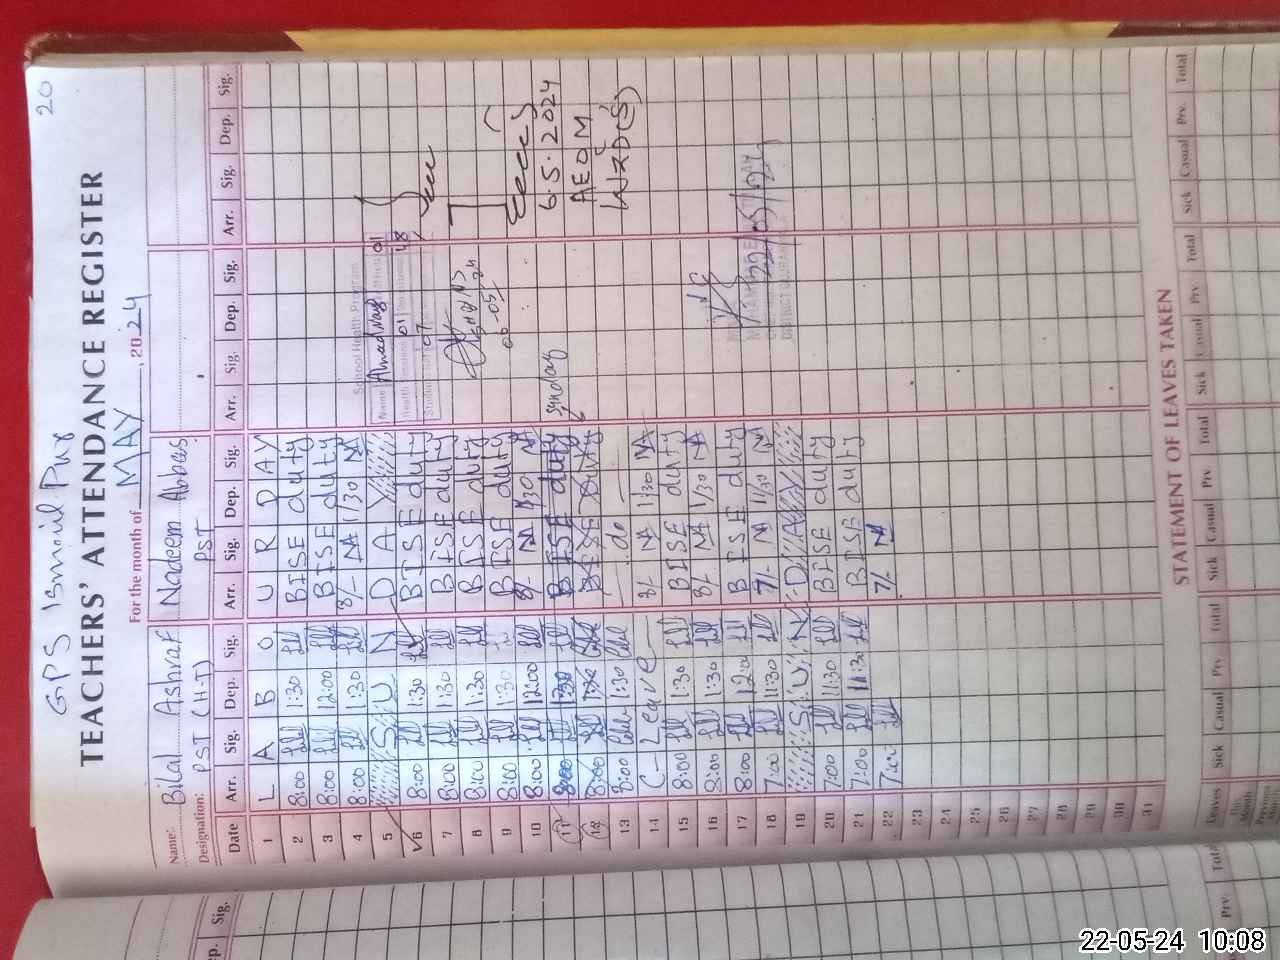 20
GPS Ismail Pur
TEACHERS' ATTENDANCE REGISTER
For the month of MAY, 2024
Name: Bilal Ashraf Nadeem Abbas
Designation: PST (H-T) PST
Date Arr. Sig. Dep. Sig. Arr. Sig. Dep. Sig. Arr. Sig. Dep. Sig. Arr. Sig. Dep. Sig.
1 L A B O U R DAY
2 8:00 1:30 BISE duty
3 8:00 12:00 BISE duty
4 8:00 1:30 8/- NA 1/30 NA
5 S U N D A Y
6 8:00 1:30 BISE duty
7 8:00 1:30 BISE duty
8 8:00 1:30 BISE duty
9 8:00 1:30 BISE duty
10 8:00 12:00 8/- NA 1/30 NA
11 8:00 1:30 BISE duty
12 8:00 1:30 BISE duty Sunday
13 8:00 1:30 — do —
14 (— Leave — 8/- NA 1:30 NA
15 8:00 1:30 BISE duty
16 8:00 1:30 8/- NA 1/30 NA
17 8:00 12:0 BISE duty
18 7:00 11:30 7/- NA 11/30 NA
19 S U N D A Y
20 7:00 11:30 BISE duty
21 7:00 11:30 BISE duty
22 7:00 7/- NA
23
24
25
26
27
28
29
30
31
School Health Program
Name Ahmad Nawaz
01
01
07
6.5.2024
AEOM
WZD(S)
22/05/24
STATEMENT OF LEAVES TAKEN
Leaves Sick Casual Prv. Total Sick Casual Prv. Total Sick Casual Prv. Total Sick Casual Prv. Total
This Month
Previous
Sig.
Dep.
Total
Prv.
22-05-24 10:08